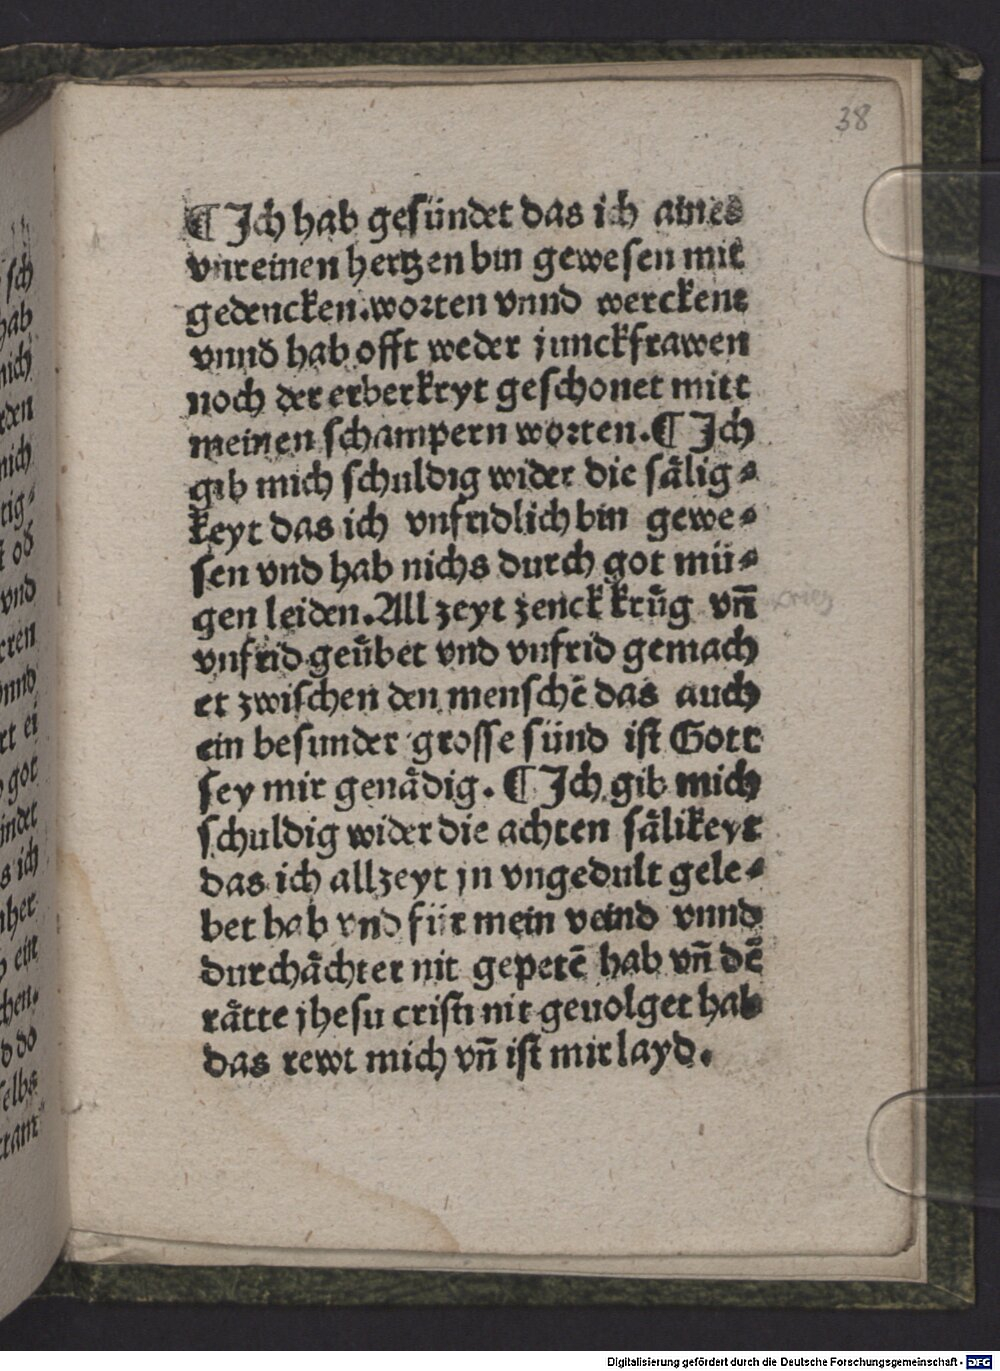 38
¶ Ich hab gesündet das ich aines
vnreinen hertzen bin gewesen mit
gedencken.worten vnnd wercken:
vnnd hab offt weder junckfrawen
noch der erberkeyt geschonet mitt
meinen schampern worten.¶ Ich
gib mich schuldig wider die sälig⸗
keyt das ich vnfridlich bin gewe⸗
sen vnd hab nichs durch got mü⸗
gen leiden.All zeyt zenck krüg vñ
krieg
vnfrid geübet vnd vnfrid gemach
et zwischen den menschē das auch
ein besunder grosse sünd ist Gott
sey mir genädig. ¶ Ich gib mich
schuldig wider die achten sälikeyt
das ich allzeyt jn vngedult gele⸗
bet hab vnd für mein veind vnnd
durchächter nit gepetē hab vñ dē
rätte jhesu cristi nit geuolget hab
das rewt mich vñ ist mir layd.
Digitalisierung gefördert durch die Deutsche Forschungsgemeinschaft - DFG